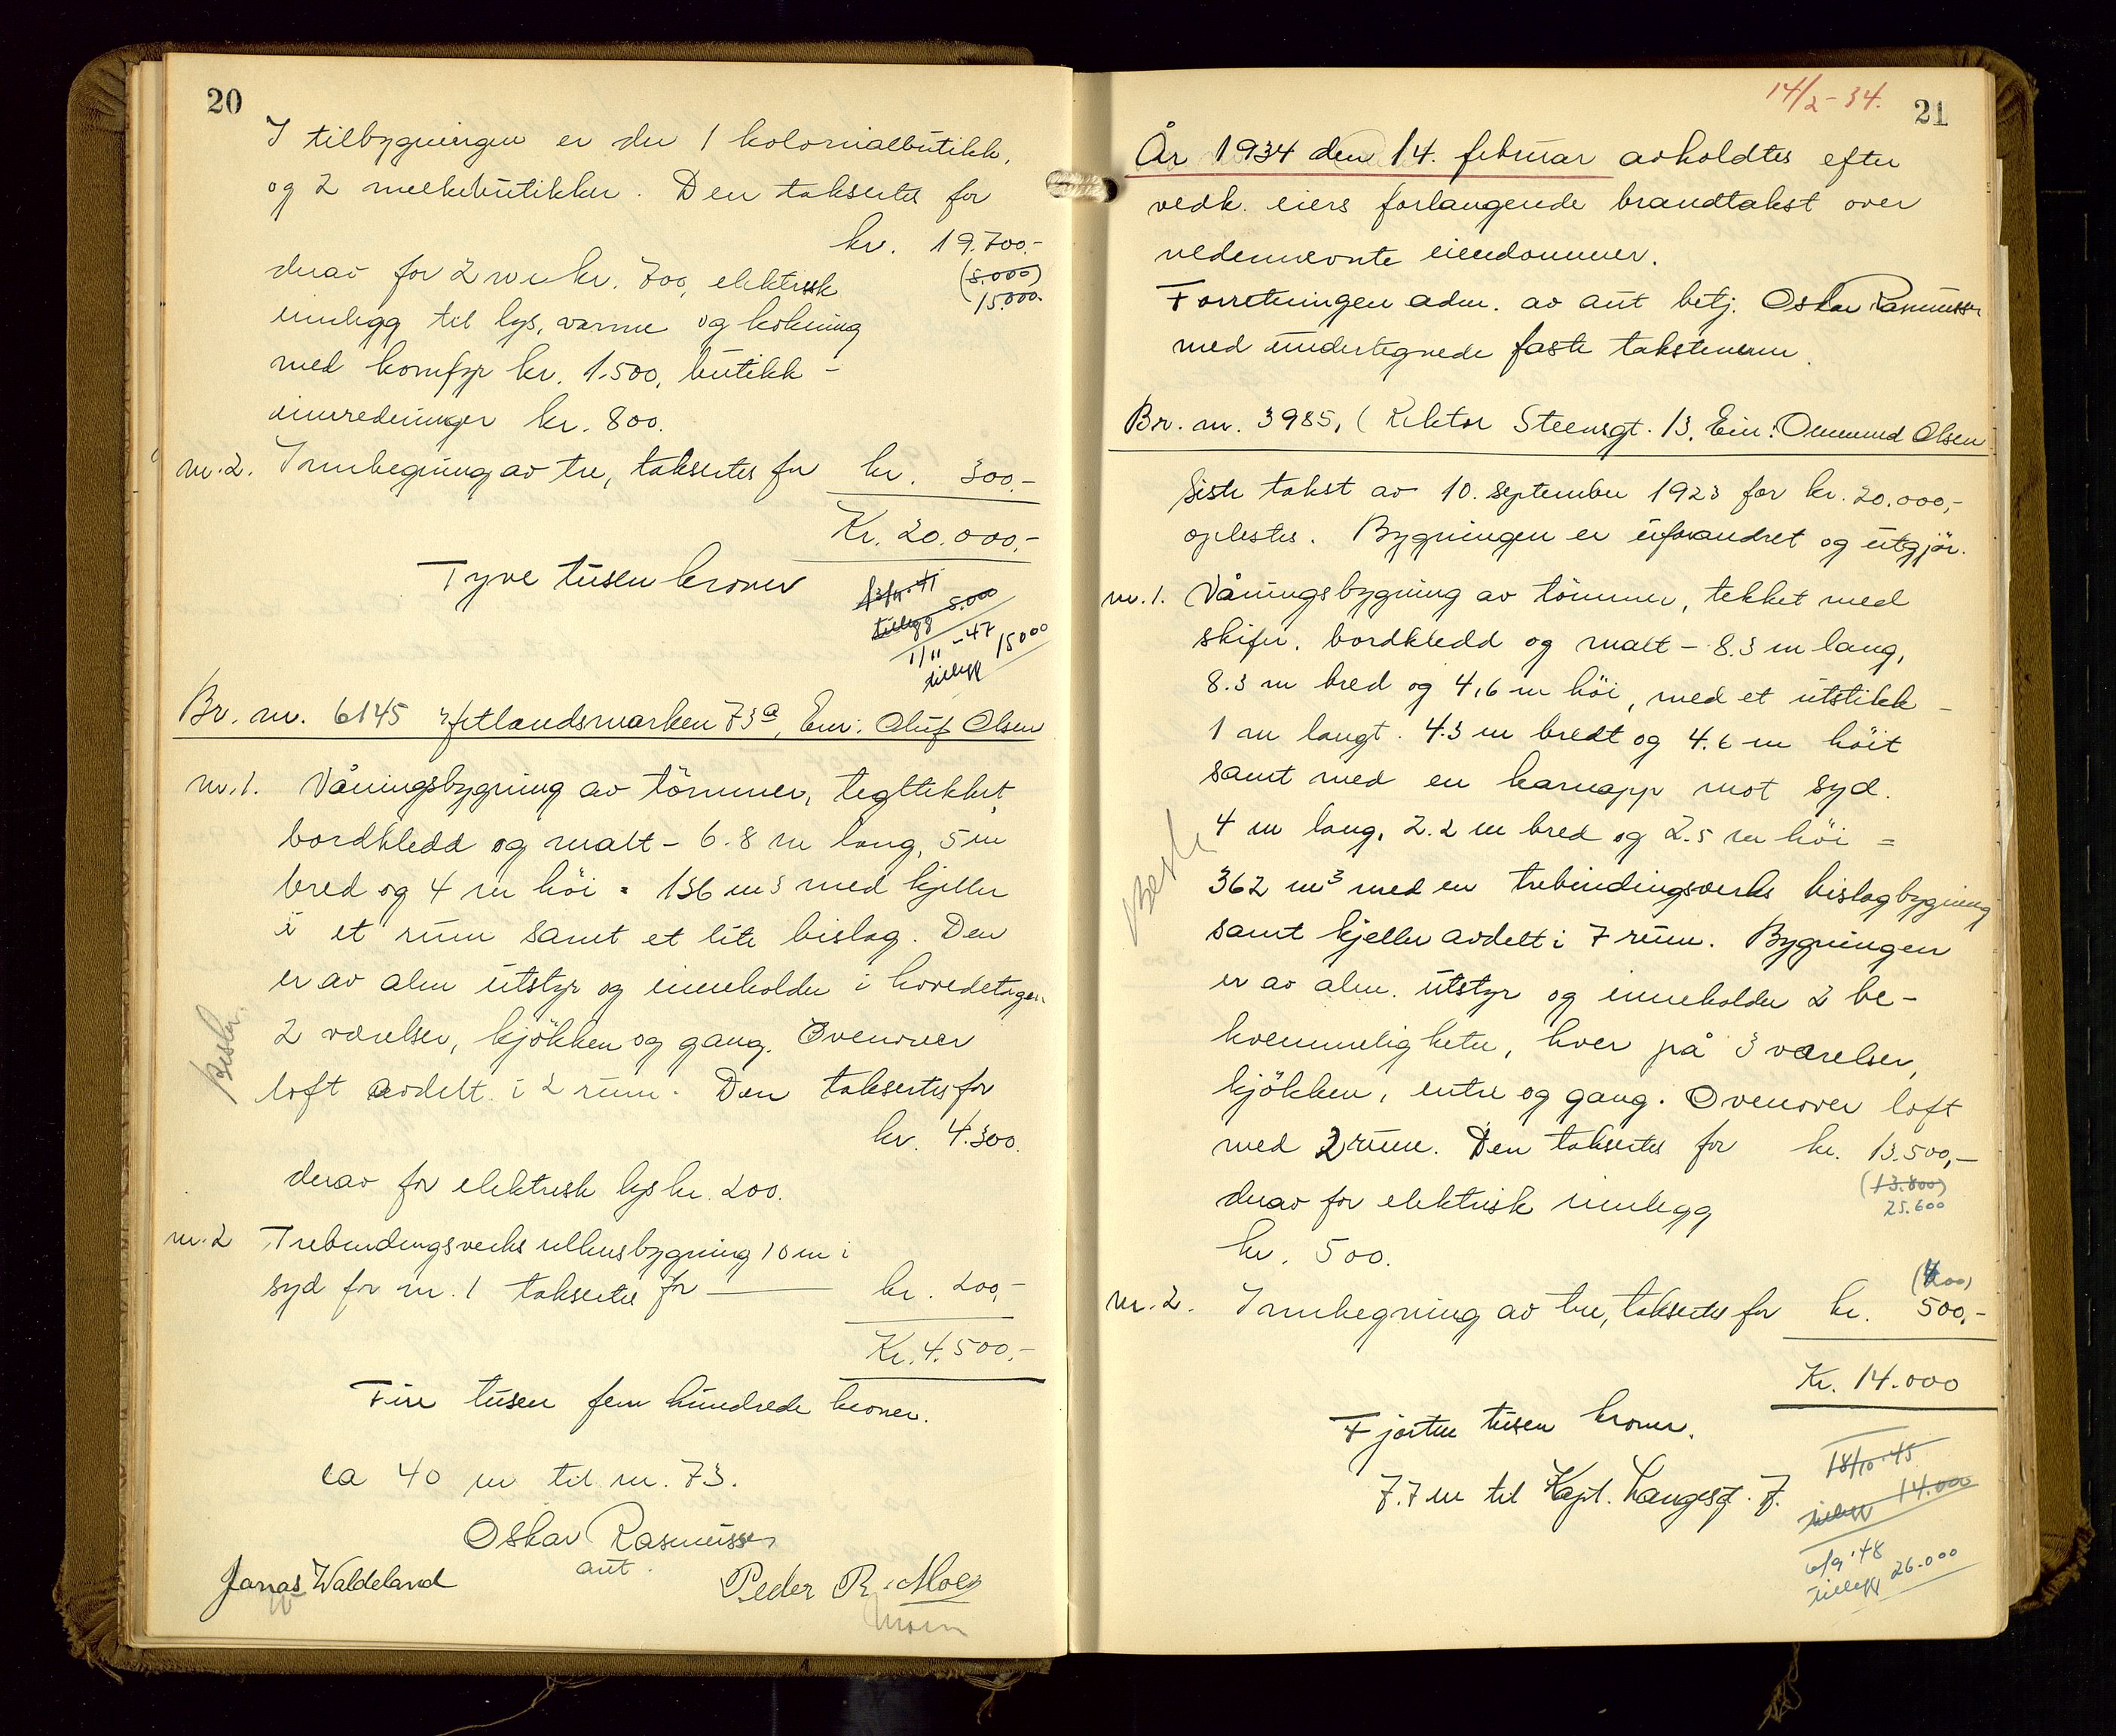 20
I tilbygningen er der 1 kolonialbutikk,
og 2 melkebutikker. Den takseres for
kr. 19.700.-
(5.000)
15.000.
derav for 2 wc kr. 700, elektrisk
innlegg til lys, varme og kokning
med komfyr kr. 1.500, butikk-
innredninger kr. 800.
nr. 2. Innhegning av tre, takseres for kr. 300.-
Kr. 20.000.-
Tyve tusen kroner
tillegg 5.000
1/11-47
tillegg 15000
Br. nr. 6145 Hetlandsmarken 73a, Eier: Oluf Olsen
nr. 1. Våningsbygning av tömmer, tegltekket,
bordkledd og malt - 6.8 m lang, 5 m
bred og 4 m höi = 136 m3 med kjeller
i et rum samt et lite bislag. Den
er av alm utstyr og inneholder i hovedetagen
2 værelser, kjökken og gang. Ovenover
loft avdelt i 2 rum. Den takseres for
kr. 4.300.
derav for elektrisk lys kr. 200.
nr. 2 Trebindingsverks uthusbygning 10 m i
syd for nr. 1 takseres for kr. 200,-
Kr. 4.500.-
Fire tusen fem hundrede kroner.
ca 40 m til nr. 73.
Oskar Rasmussen
aut.
Jonas Waldeland
Peder R. Moe
14/2-34.
21
År 1934 den 14. februar avholdtes efter
vedk. eiers forlangende brandtakst over
nedennevnte eiendommer.
Forretningen adm. av aut betj. Oskar Rasmussen
med undertegnede faste takstmenn.
Br. nr. 3985, (Rektor Steensgt. 13. Eier: Ommund Olsen
Siste takst av 10. september 1923 for kr. 20.000,-
oplestes. Bygningen er uforandret og utgjör.
nr. 1. Våningsbygning av tömmer, tekket med
skifer, bordkledd og malt - 8.3 m lang,
8.3 m bred og 4,6 m höi, med et utstikk -
1 m langt. 4.3 m bredt og 4.6 m höit
samt med en karnapp mot syd.
4 m lang, 2.2 m bred og 2.5 m höi =
362 m3 med en trebindingsverks bislagbygning
samt kjeller avdelt i 7 rum. Bygningen
er av alm. utstyr og inneholder 2 be-
kvemmeligheter, hver på 3 værelser,
kjökken, entre og gang. Ovenover loft
med 2 rum. Den takseres for kr. 13.500,-
(13.800)
25.600
derav for elektrisk innlegg
kr. 500.
nr. 2. Innhegning av tre, takseres for kr. 500,-
(400)
Kr. 14.000
Fjorten tusen kroner.
7.7 m til Kapt. Langesgt. 7.
18/10-45
tillegg 14.000
6/9'48
tillegg 26.000